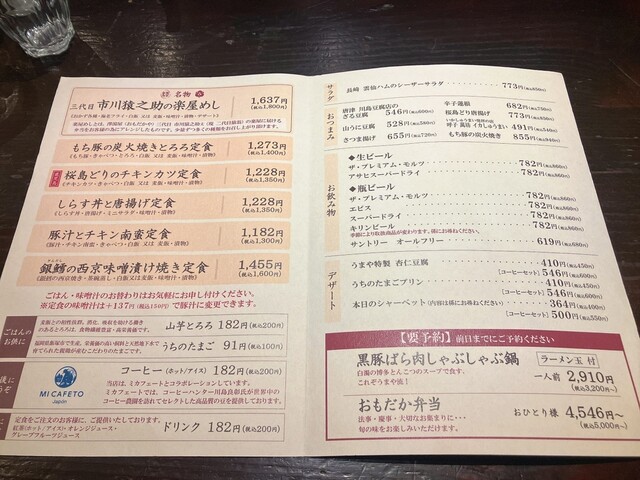 名物
三代目 市川猿之助の楽屋めし 1,637円
(税込1,800円)
もち豚の炭火焼きとろろ定食 1,273円
(もち豚・きゃべつ・とろろ・白飯 又は 麦飯・味噌汁・漬物) (税込1,400円)
桜島どりのチキンカツ定食 1,228円
(チキンカツ・きゃべつ・白飯 又は 麦飯・味噌汁・漬物) (税込1,350円)
しらす丼と唐揚げ定食 1,228円
(しらす丼・唐揚げ・ミニサラダ・味噌汁・漬物) (税込1,350円)
豚汁とチキン南蛮定食 1,182円
(豚汁・チキン南蛮・きゃべつ・白飯 又は 麦飯・漬物) (税込1,300円)
銀鱈の西京味噌漬け焼き定食 1,455円
(税込1,600円)
ごはん・味噌汁のお替わりはお気軽にお申し付けください。
※定食の味噌汁は+137円(税込150円)で豚汁に変更できます。
ごはんのお供に
山芋とろろ 182円(税込200円)
うちのたまご 91円(税込100円)
MI CAFETO
Japan
コーヒー(ホット/アイス) 182円(税込200円)
当店は、ミカフェートとコラボレーションしています。
ミカフェートでは、コーヒーハンター川島良彰氏が世界中の
コーヒー農園を訪れてセレクトした高品質の豆を提供しています。
定食をご注文のお客様に、ご提供いたしております。
紅茶(ホット/アイス)・オレンジジュース・
グレープフルーツジュース
ドリンク 182円(税込200円)
サラダ
長崎 雲仙ハムのシーザーサラダ 773円(税込850円)
おつまみ
唐津 川島豆腐店の
ざる豆腐 546円(税込600円)
山うに豆腐 528円(税込580円)
さつま揚げ 655円(税込720円)
辛子蓮根 682円(税込750円)
桜島どり唐揚げ 773円(税込850円)
呼子 萬坊 イカしゅうまい 491円(税込540円)
もち豚の炭火焼き 855円(税込940円)
お飲み物
◆生ビール
ザ・プレミアム・モルツ 782円(税込860円)
アサヒスーパードライ 782円(税込860円)
◆瓶ビール
ザ・プレミアム・モルツ 782円(税込860円)
エビス 782円(税込860円)
スーパードライ 782円(税込860円)
キリンビール 782円(税込860円)
季節により取扱商品が変わります。係にお尋ねください。
サントリー オールフリー 619円(税込680円)
デザート
うまや特製 杏仁豆腐 410円(税込450円)
[コーヒーセット] 546円(税込600円)
うちのたまごプリン 410円(税込450円)
[コーヒーセット] 546円(税込600円)
本日のシャーベット(内容は係にお尋ねください) 364円(税込400円)
[コーヒーセット] 500円(税込550円)
【要予約】 前日までにご予約ください
黒豚ばら肉しゃぶしゃぶ鍋 ラーメン玉 付
白湯の博多とんこつのスープで食す、
これぞうまや流!
一人前 2,910円
(税込3,200円~)
おもだか弁当 おひとり様 4,546円~
法事・慶事・大切なお集まりに・・・
旬の味をお楽しみいただけます。
(税込5,000円~)